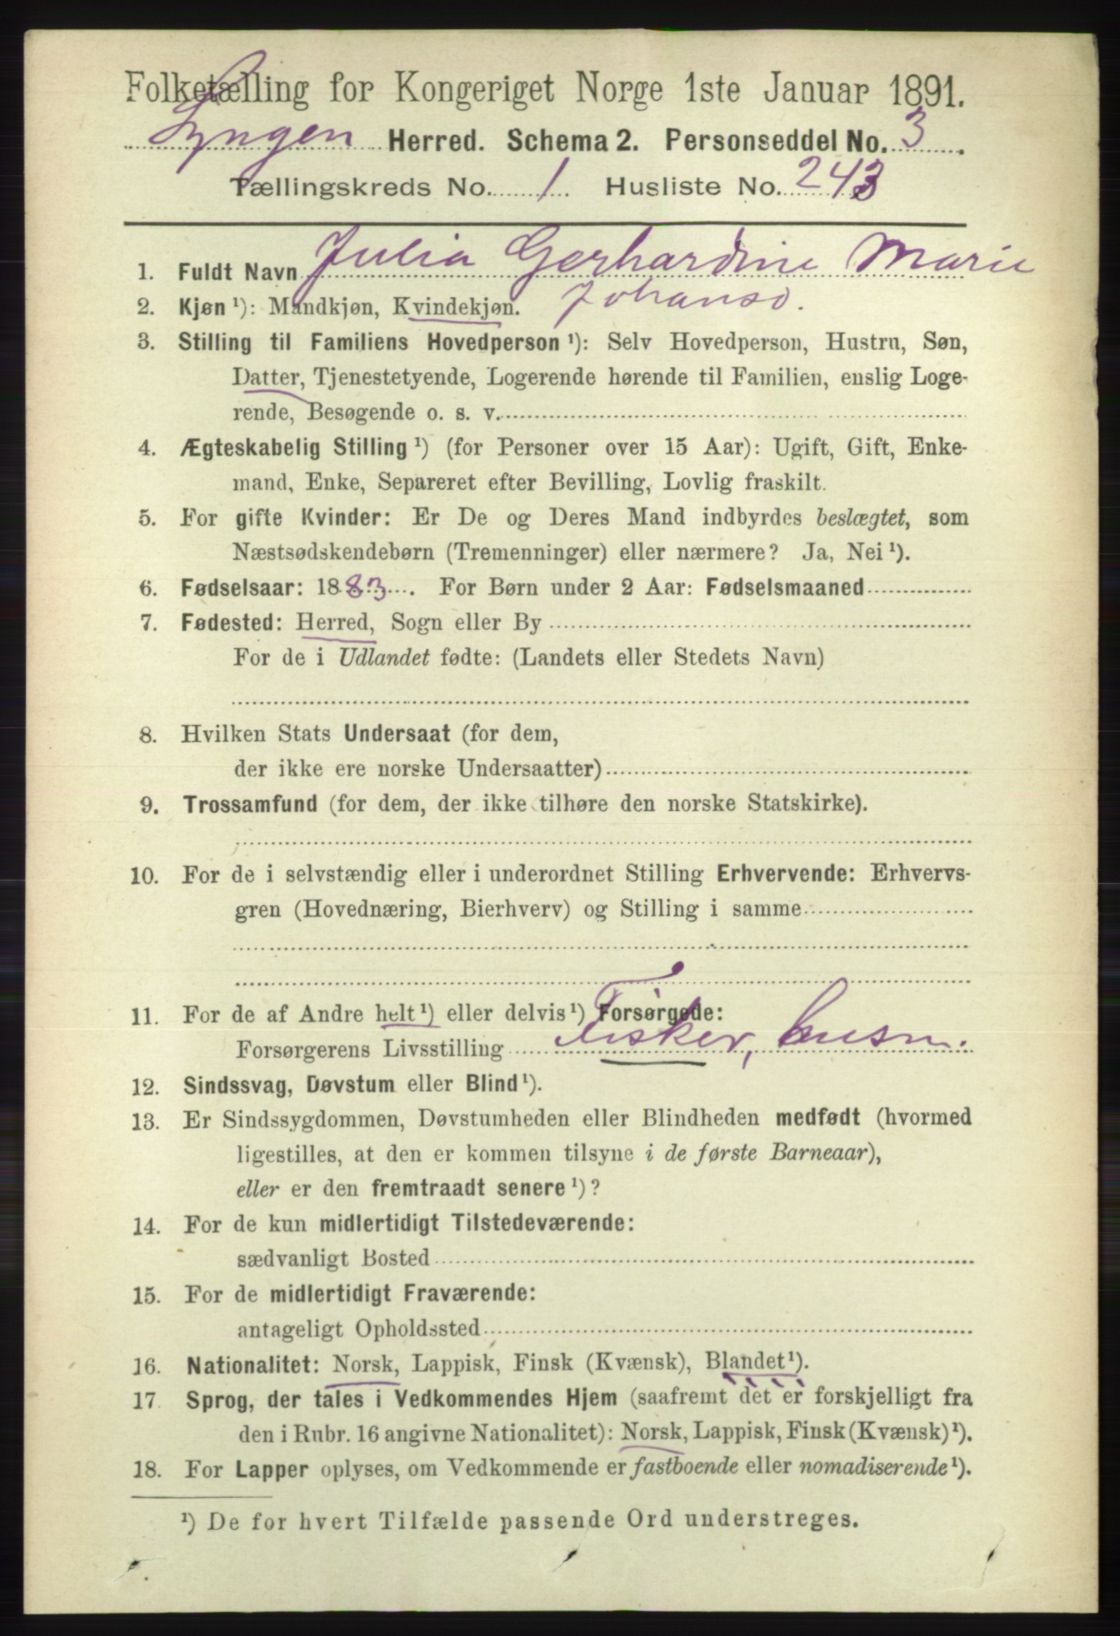 Folketælling for Kongeriget Norge 1ste Januar 1891.
Lyngen Herred. Schema 2. Personseddel No. 3.
Tællingskreds No. 1. Husliste No. 243
1. Fuldt Navn Julia Gerhardine Marie
Johansd.
2. Kjøn ¹): Mandkjøn, Kvindekjøn.
3. Stilling til Familiens Hovedperson ¹): Selv Hovedperson, Hustru, Søn,
Datter, Tjenestetyende, Logerende hørende til Familien, enslig Loge-
rende, Besøgende o. s. v.
4. Ægteskabelig Stilling ¹) (for Personer over 15 Aar): Ugift, Gift, Enke-
mand, Enke, Separeret efter Bevilling, Lovlig fraskilt.
5. For gifte Kvinder: Er De og Deres Mand indbyrdes beslægtet, som
Næstsødskendebørn (Tremenninger) eller nærmere? Ja, Nei ¹).
6. Fødselsaar: 1883. For Børn under 2 Aar: Fødselsmaaned
7. Fødested: Herred, Sogn eller By
For de i Udlandet fødte: (Landets eller Stedets Navn)
8. Hvilken Stats Undersaat (for dem,
der ikke ere norske Undersaatter)
9. Trossamfund (for dem, der ikke tilhøre den norske Statskirke).
10. For de i selvstændig eller i underordnet Stilling Erhvervende: Erhvervs-
gren (Hovednæring, Bierhverv) og Stilling i samme
11. For de af Andre helt ¹) eller delvis ¹) Forsørgede:
Forsørgerens Livsstilling Fisker, husm.
12. Sindssvag, Døvstum eller Blind ¹).
13. Er Sindssygdommen, Døvstumheden eller Blindheden medfødt (hvormed
ligestilles, at den er kommen tilsyne i de første Barneaar),
eller er den fremtraadt senere ¹)?
14. For de kun midlertidigt Tilstedeværende:
sædvanligt Bosted
15. For de midlertidigt Fraværende:
antageligt Opholdssted
16. Nationalitet: Norsk, Lappisk, Finsk (Kvænsk), Blandet ¹).
17 Sprog, der tales i Vedkommendes Hjem (saafremt det er forskjelligt fra
den i Rubr. 16 angivne Nationalitet): Norsk, Lappisk, Finsk (Kvænsk) ¹).
18. For Lapper oplyses, om Vedkommende er fastboende eller nomadiserende ¹).
¹) De for hvert Tilfælde passende Ord understreges.